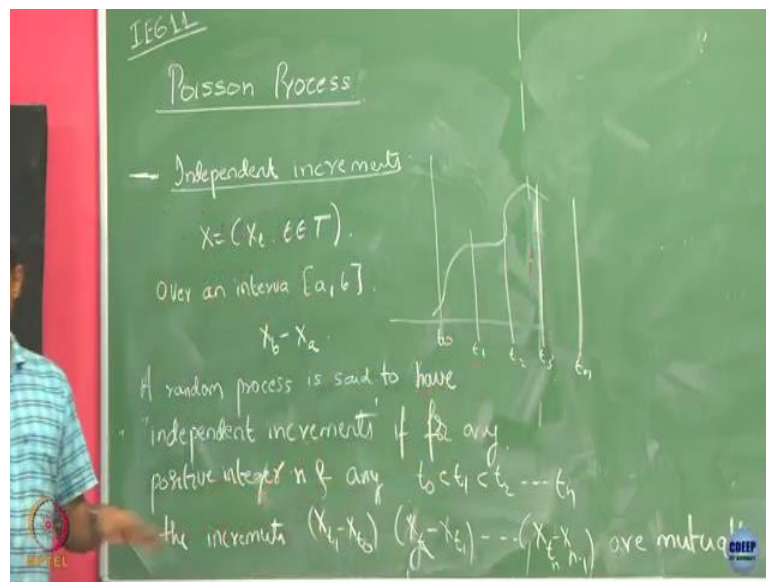 IE611
Poisson Process
— Independent increments
X = (X_t . t ∈ T).
Over an interva [a, b].
X_b - X_a.
t_0 t_1 t_2 t_3 t_n
A random process is said to have
"independent increments" if for any
positive integer n & any t_0 < t_1 < t_2 --- t_n
the increments (X_{t_1} - X_{t_0}) (X_{t_2} - X_{t_1}) --- (X_{t_n} - X_{n-1}) are mutual
NPTEL
CDEEP